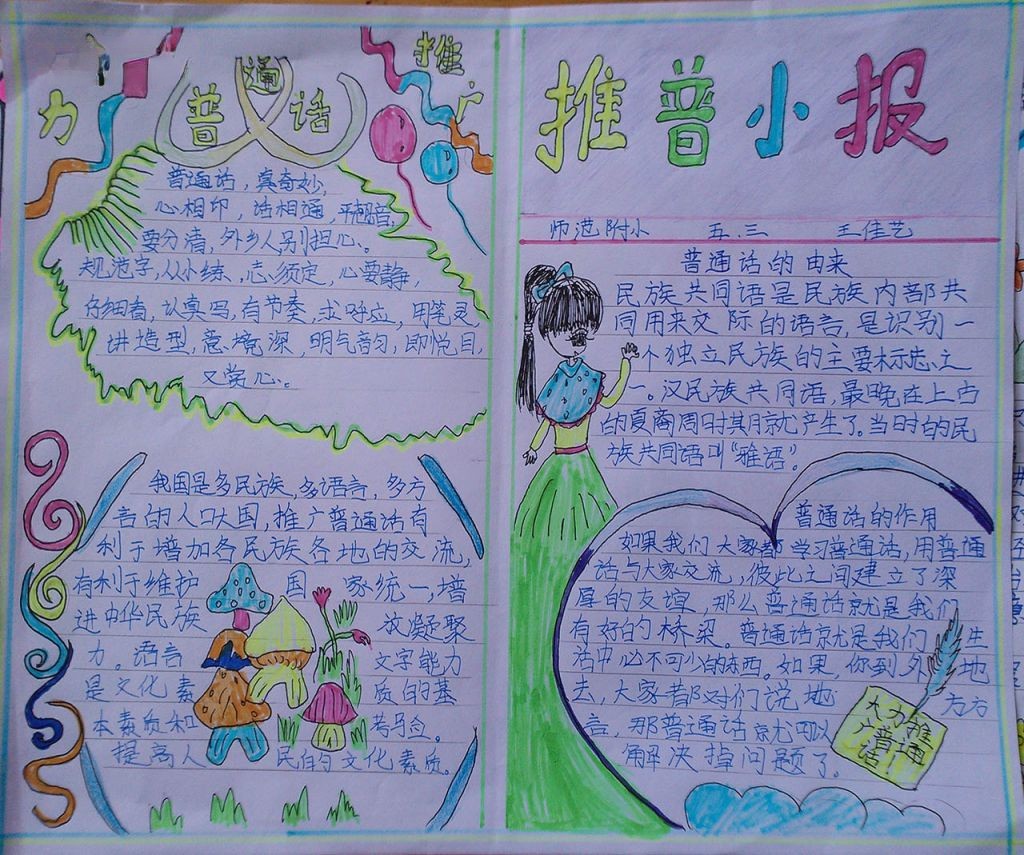 力
推广
普通话
普通话,真奇妙,
心相印,话相通,平翘音,
要分清,外乡人,别担心。
规范字,从小练,志须定,心要静,
仔细看,认真写,有节奏,求呼应,用笔灵,
讲造型,意境深,明气韵,即悦目,
又赏心。
我国是多民族,多语言,多方
言的人口大国,推广普通话有
利于增加各民族各地的交流,
有利于维护国家统一,增
进中华民族 凝聚
力。语言文字能力
是文化素质的基
本素质和
提高人民的文化素质。
推普小报
师范附小 五.三 王佳艺
普通话的由来
民族共同语是民族内部共
同用来交际的语言,是识别一
个独立民族的主要标志之
一。汉民族共同语,最晚在上古
的夏商周时期就产生了。当时的民
族共同语叫“雅语”。
普通话的作用
如果我们大家都学习普通话,用普通
话与大家交流,彼此之间建立了深
厚的友谊,那么普通话就是我们
有好的桥梁。普通话就是我们生
活中必不可少的东西。如果,你到外地
去,大家都对们说地方方
言,那普通话就可以
解决掉问题了。
大力推
广普通
话